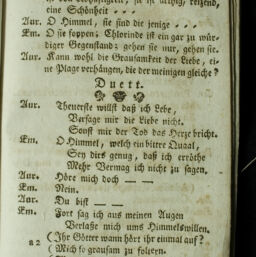 eine Schönheit . . .
Aur. O Himmel, sie sind die jenige . . .
Em. O sie foppen; Chlorinde ist ein gar zu würdiger
Gegenstand; gehen sie nur, gehen sie.
Aur. Kann wohl die Grausamkeit der Liebe, eine
Plage verhängen, die der meinigen gleiche?
Duett.
Aur. Theuerste willst daß ich Lebe,
Versage mir die Liebe nicht.
Sonst mir der Tod das Herze bricht.
Em. O Himmel, welch ein bittre Quaal,
Sey dies genug, daß ich erröthe
Mehr Vermag ich nicht zu sagen.
Aur. Höre mich doch — —
Em. Nein.
Aur. Du bist — —
Em. Fort sag ich aus meinen Augen
Verlaße mich ums Himmelswillen.
(Ihr Götter wann hört ihr einmal auf?
a 2
(Mich so grausam zu foltern.